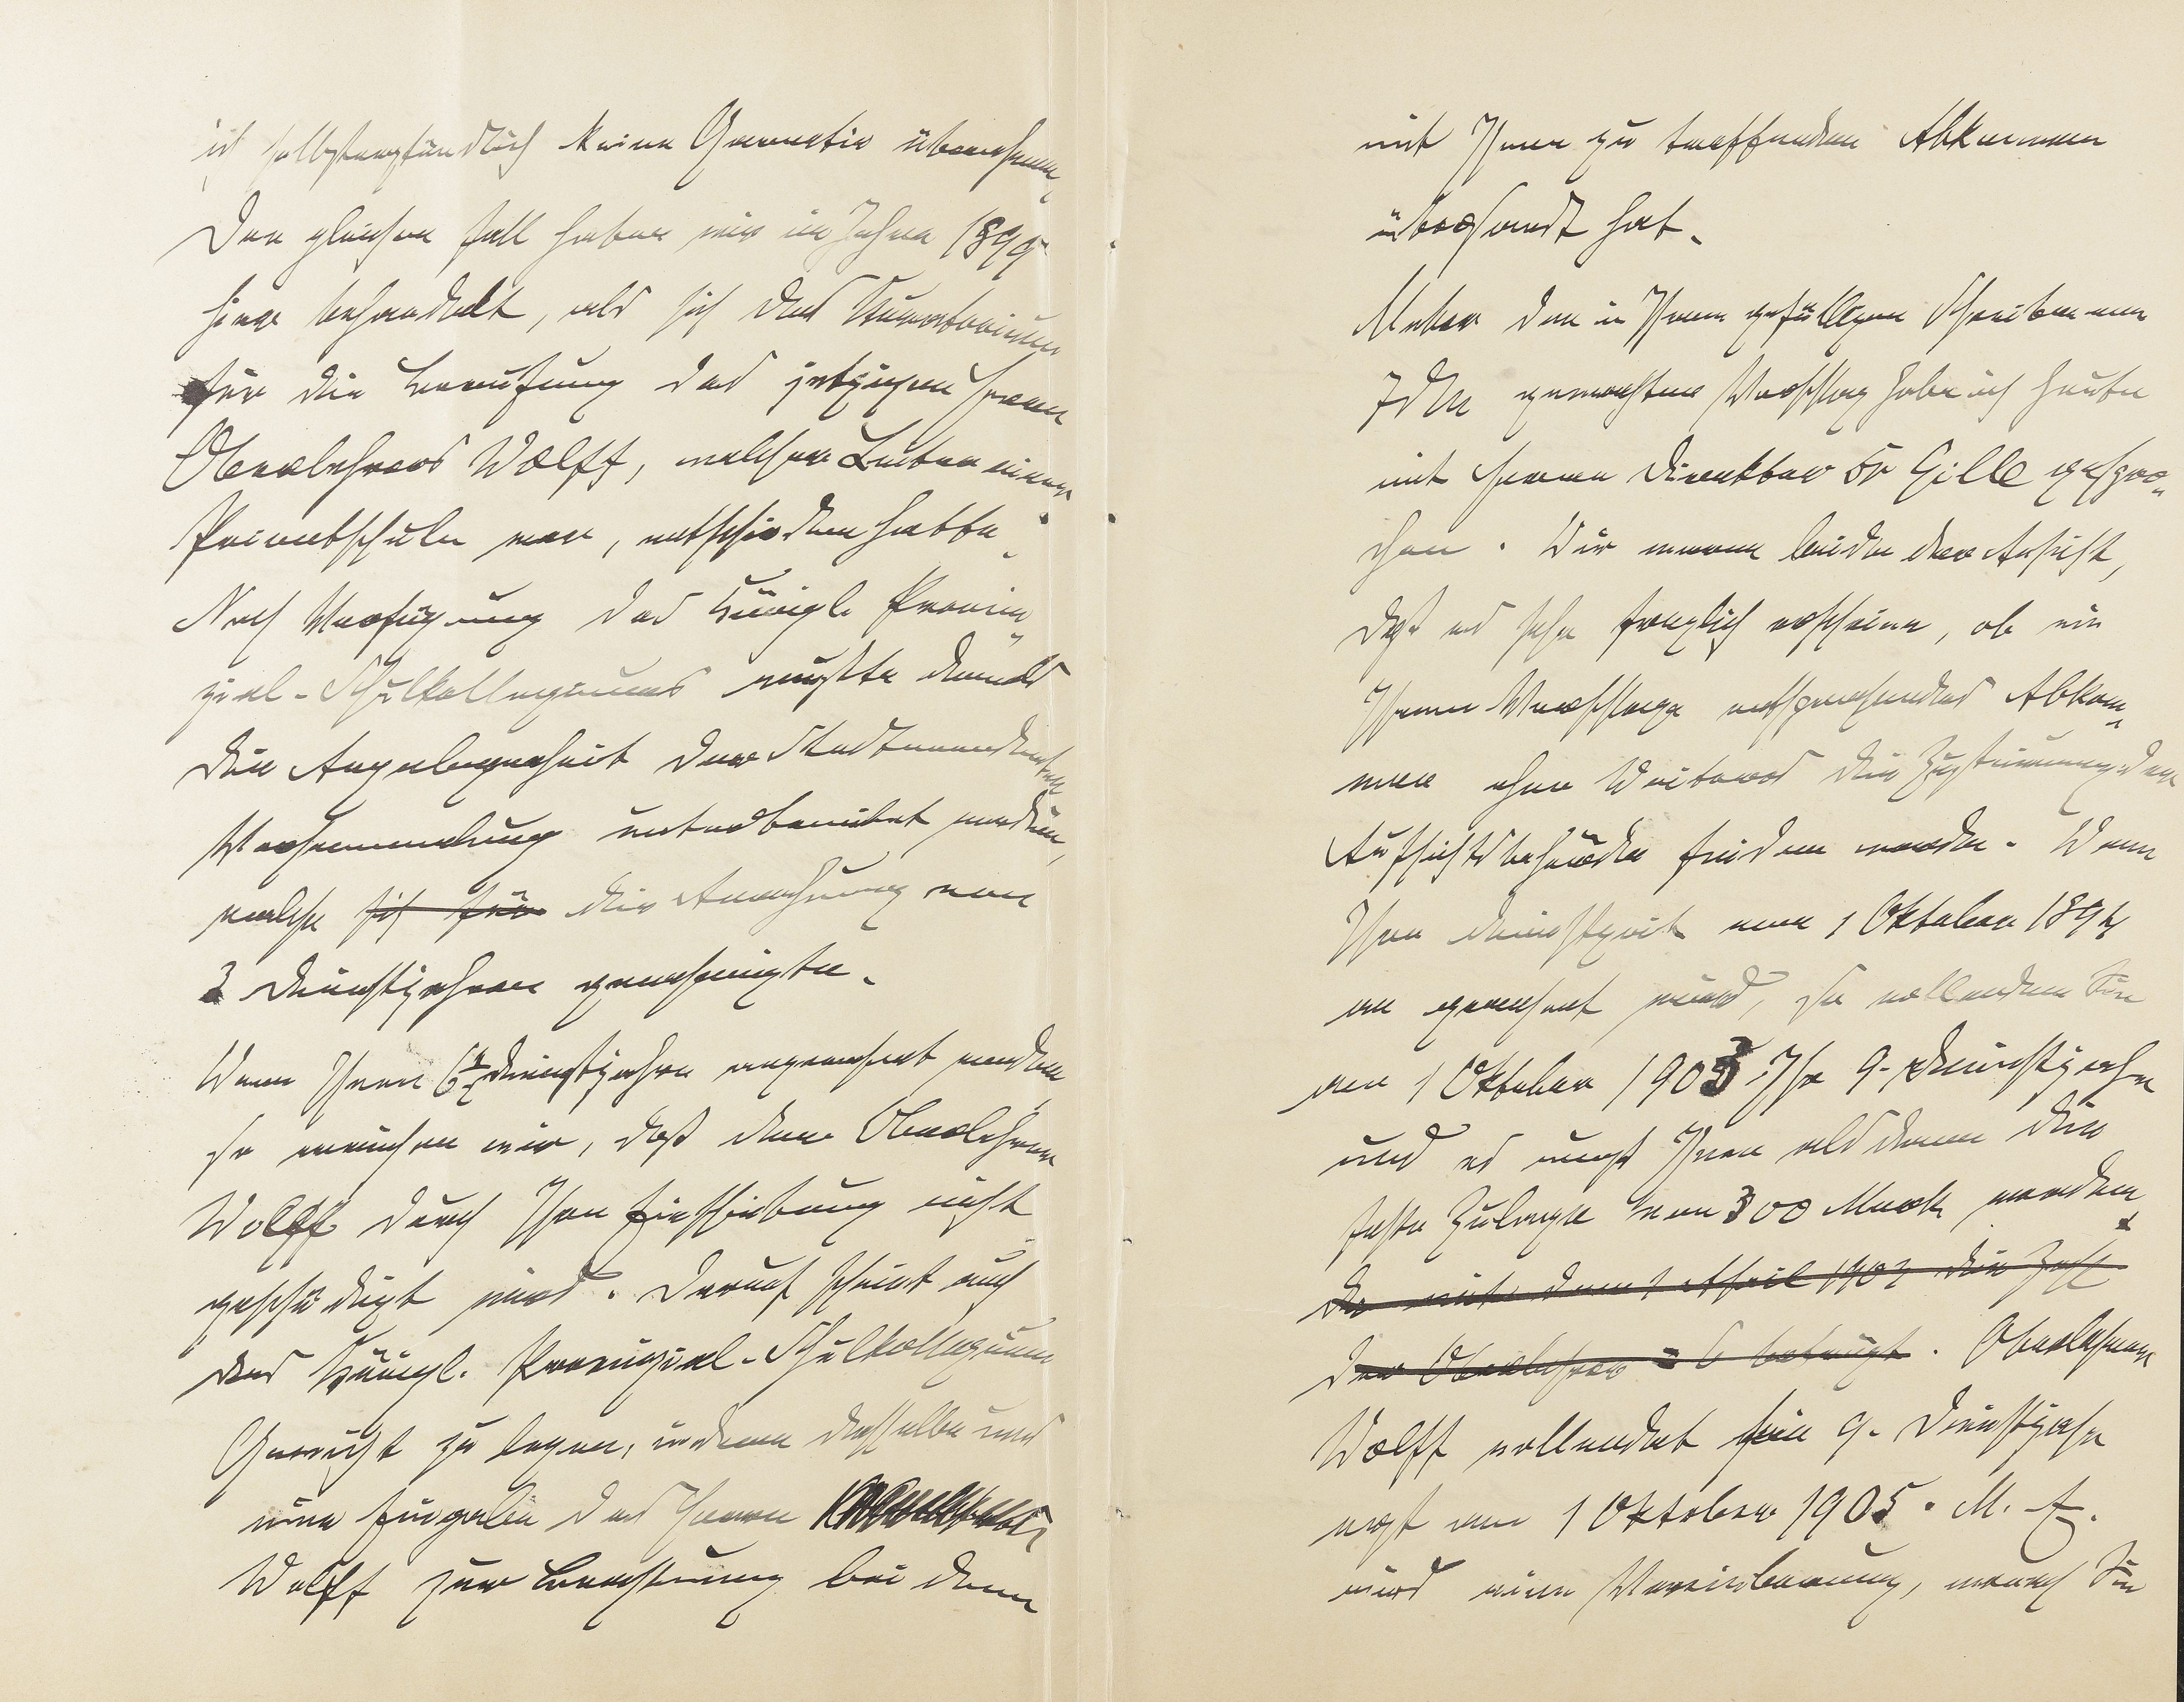 ich selbstverständlich keine Garantie übernehmen.
Den gleichen Fall haben wir im Jahre 1899
hier behandelt, als sich das Kuratorium
für die Berufung des jetzigen Herrn
Oberlehrers Wolff, welcher Leiter einer
Privatschule war, entschieden hatte.
Nach Verfügung des Königl. Provin-
zial-Schulkollegiums mußte damals
die Angelegenheit der Stadtverordneten
Versammlung unterbreitet werden,
welche sich für die Anrechnung von
3 Dienstjahren genehmigte.
Wenn Ihnen 6½ Dienstjahre angerechnet werden
so erreichen wir, daß dem Oberlehrer
Wolff durch Ihre Einschiebung nicht
geschädigt wird. Darauf scheint auch
das Königl. Provinzial-Schulkollegium
Gewicht zu legen, indem dasselbe uns
eine Eingabe des Herrn
Wolff zur Beachtung bei dem
mit Ihnen zu treffenden Abkommen
übersandt hat.
Ueber den in Ihrem gefälligen Schreiben vom
7 d Mts gemachten Vorschlag habe ich heute
mit Herrn Direktor Dr Gille gespro-
chen. Wir waren beide der Ansicht,
daß es sehr fraglich erscheine, ob ein
Ihrem Vorschlage entsprechendes Abkom-
men ohne Weiteres die Zustimmung der
Aufsichtsbehörde finden werde. Wenn
Ihre Dienstzeit vom 1 Oktober 1894
an gerechnet wird, so vollenden Sie
am 1 Oktober 1903 Ihr 9. Dienstjahr
und es muß Ihnen alsdann die
feste Zulage von 300 Mark werden.
Da mit dem 1 April 1902 die Zahl
der Oberlehrer = 6 beträgt. Oberlehrer
Wolff vollendet sein 9. Dienstjahr
erst am 1 Oktober 1905. M. E.
wird eine Vereinbarung, wonach Sie